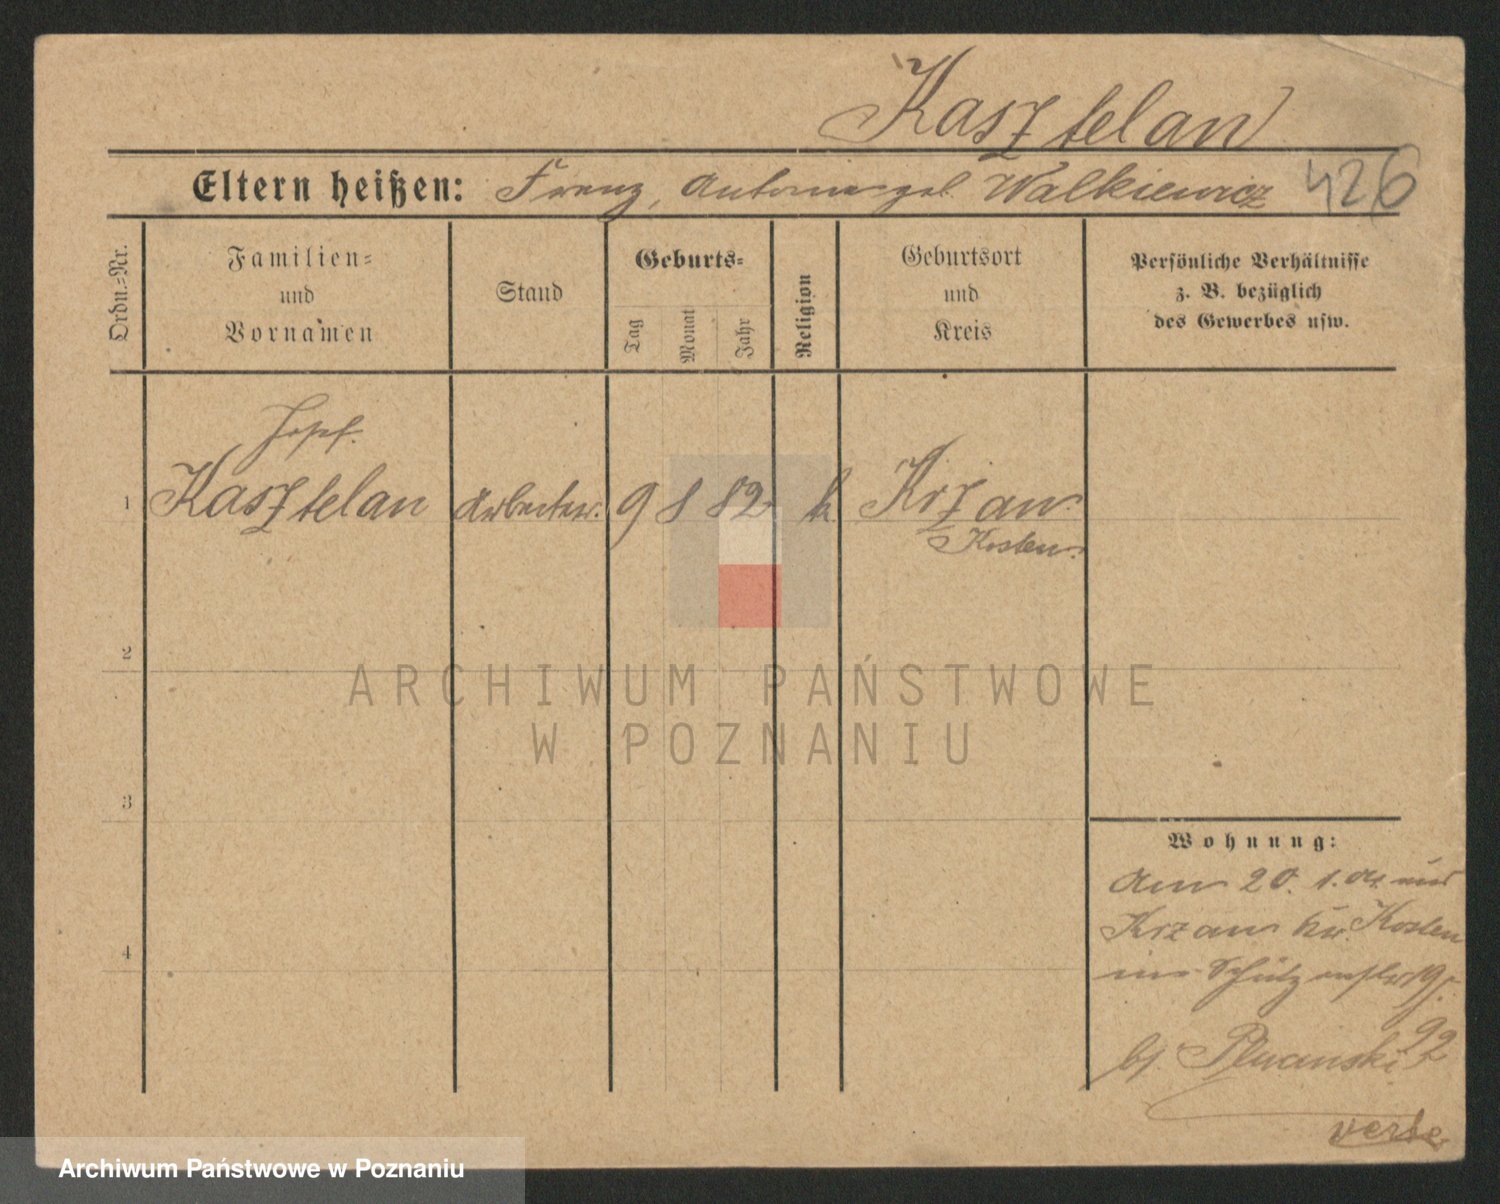 Kasztelan
Eltern heißen: Franz, Antonie geb. Walkiewicz 426
Ordn.=Nr.
Familien=
und
Vornamen
Stand
Geburts=
Tag
Monat
Jahr
Religion
Geburtsort
und
Kreis
Persönliche Verhältnisse
z. B. bezüglich
des Gewerbes usw.
Josef.
1 Kasztelan Arbeiter. 9 8 82 k. Krzan
Kosten.
2
ARCHIWUM PAŃSTWOWE
W POZNANIU
3
Wohnung:
Am 20. 1. aus
Krzan Kr. Kosten
in
4
bs. Plucinski 92
verte
Archiwum Państwowe w Poznaniu